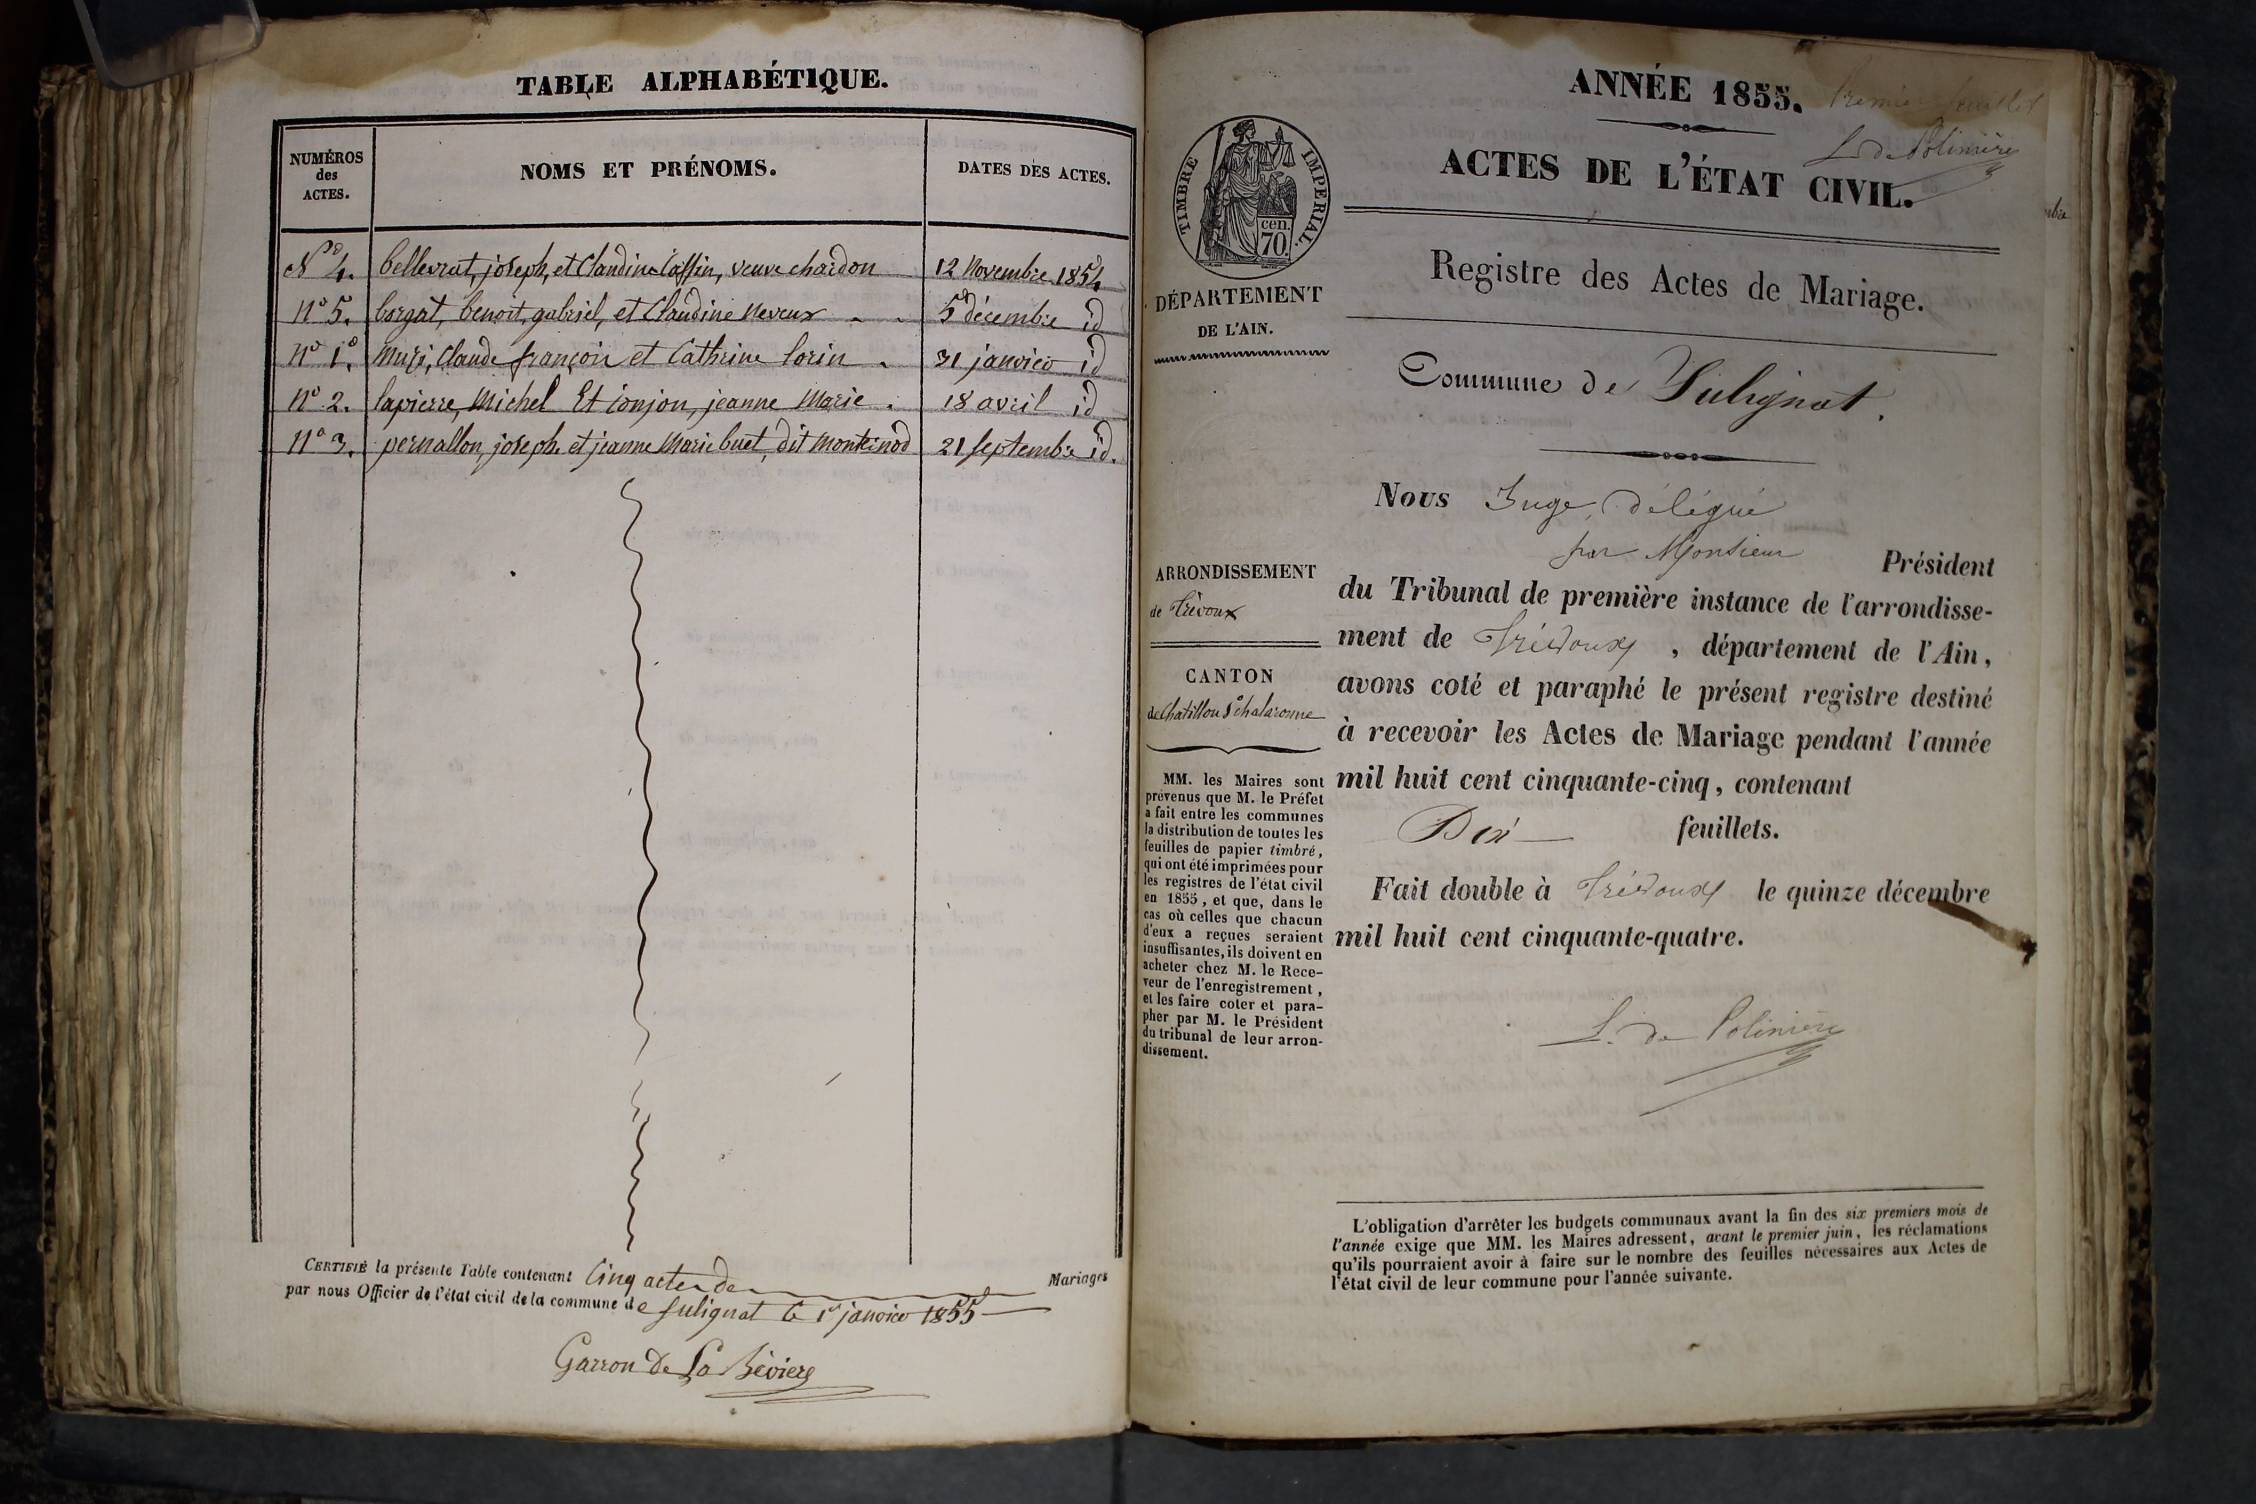 TABLE ALPHABÉTIQUE.
NUMÉROS des ACTES.
NOMS ET PRÉNOMS.
DATES DES ACTES.
N° 4. bellevrat, joseph, et Claudine Caffin, veuve chardon 12 Novembre 1854
n° 5. borgat, benoit, gabriel, et Claudine Neveux 5 décembre id
n° 1. Muzi, Claude françois et Cathrine lorin 31 janvier id
n° 2. lapierre, Michel Et Conjon, jeanne Marie 18 avril id
n° 3. pernallon, joseph, et jeanne Marie buet, dit Monteinod 21 septembre id.
CERTIFIÉ la présente Table contenant Cinq actes de Mariages
par nous Officier de l'état civil de la commune de Sulignat le 1er janvier 1855
Garron De La Bévière
ANNÉE 1855.
Premier feuillet
L. de Polinière
ACTES DE L'ÉTAT CIVIL.
TIMBRE IMPERIAL.
cen.
70.
DÉPARTEMENT
DE L'AIN.
Registre des Actes de Mariage.
Commune de Sulignat.
ARRONDISSEMENT
de Trévoux
CANTON
de Chatillon s. Chalaronne
MM. les Maires sont
prévenus que M. le Préfet
a fait entre les communes
la distribution de toutes les
feuilles de papier timbré,
qui ont été imprimées pour
les registres de l'état civil
en 1855, et que, dans le
cas où celles que chacun
d'eux a reçues seraient
insuffisantes, ils doivent en
acheter chez M. le Rece-
veur de l'enregistrement,
et les faire coter et para-
pher par M. le Président
du tribunal de leur arron-
dissement.
Nous Juge, délégué
par Monsieur Président
du Tribunal de première instance de l'arrondisse-
ment de Trévoux, département de l'Ain,
avons coté et paraphé le présent registre destiné
à recevoir les Actes de Mariage pendant l'année
mil huit cent cinquante-cinq, contenant
Dix feuillets.
Fait double à Trévoux le quinze décembre
mil huit cent cinquante-quatre.
L. de Polinière
L'obligation d'arrêter les budgets communaux avant la fin des six premiers mois de
l'année exige que MM. les Maires adressent, avant le premier juin, les réclamations
qu'ils pourraient avoir à faire sur le nombre des feuilles nécessaires aux Actes de
l'état civil de leur commune pour l'année suivante.